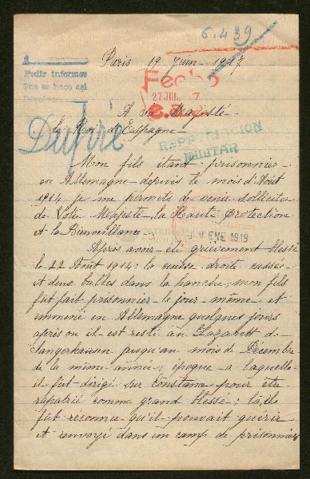 6.439
Paris 19 Juin 1917
Pedir informes
Fecho
27 JUN. 17
A Sa Majesté
le Roi d'Espagne
REPATRIACION
MILITAR
Dufiré
Mon fils étant prisonnier
en Allemagne depuis le mois d'Août
1914, je me permets de venir solliciter
de Votre Majesté la Haute protection
et la Bienveillance
ENE 1919
Après avoir été grièvement blessé
le 22 Août 1914: la cuisse droite cassée
et deux balles dans la hanche, mon fils
fut fait prisonnier le jour même et
emmené en Allemagne quelques jours
après où il est resté au Lazarett de
Langerhausen jusqu'au mois de Décembre
de la même année; époque à laquelle
il fut dirigé sur Constanz pour être
rapatrié comme grand blessé; là, il
fut reconnu qu'il pouvait guérir
et renvoyé dans un camp de prisonniers